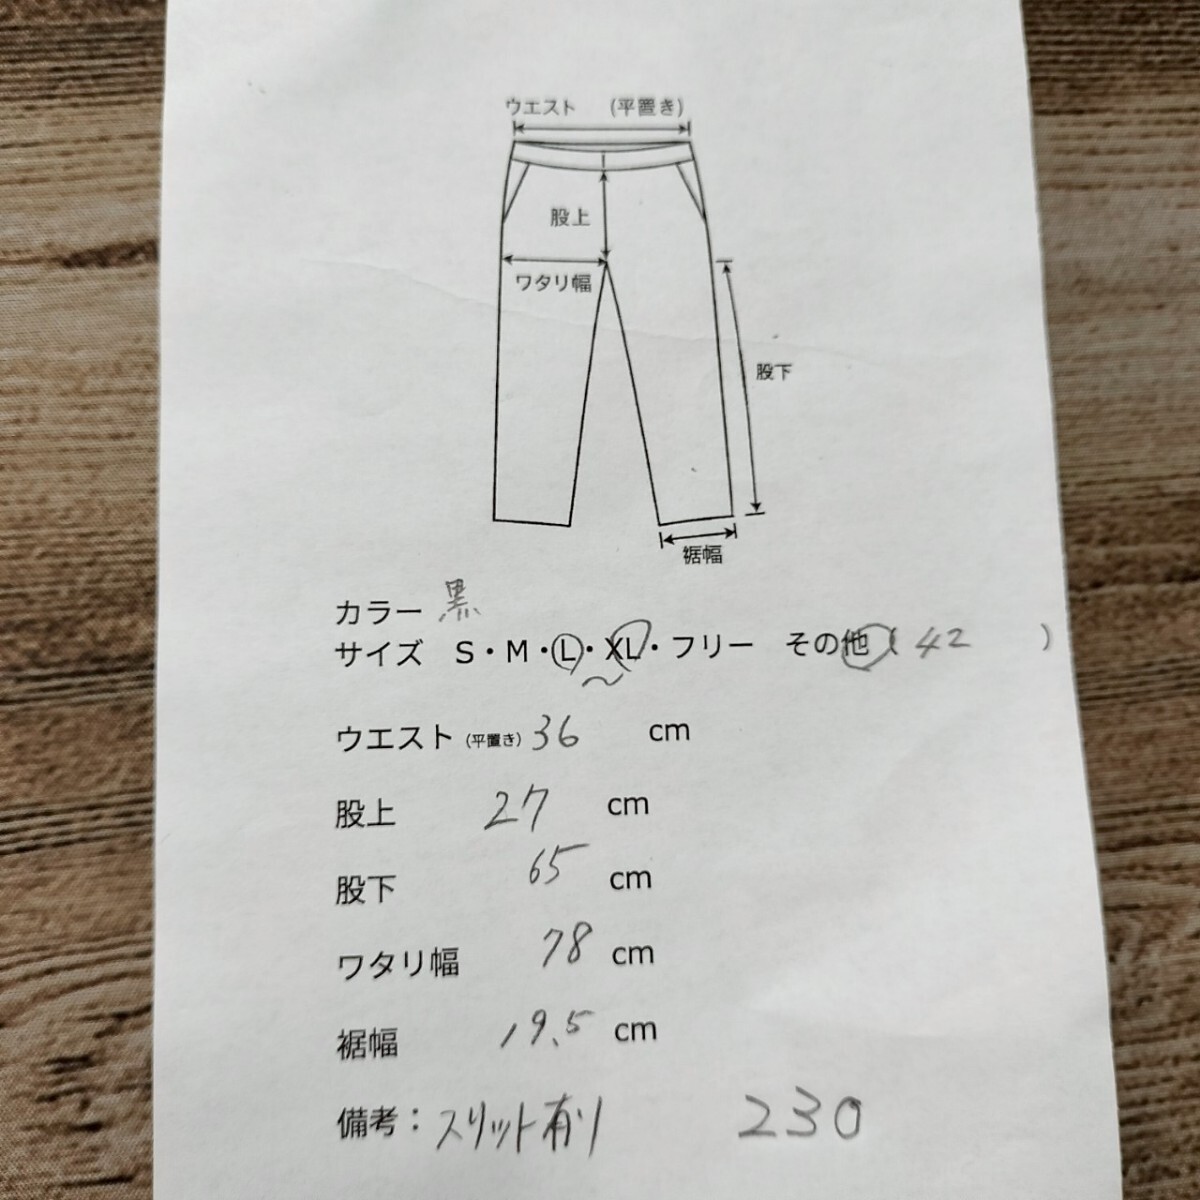 ウエスト (平置き)
股上
ワタリ幅
股下
裾幅
カラー 黒
サイズ S・M・L・XL・フリー その他( 42 )
ウエスト(平置き) 36 cm
股上 27 cm
股下 65 cm
ワタリ幅 78 cm
裾幅 19.5 cm
備考:スリット有り 230